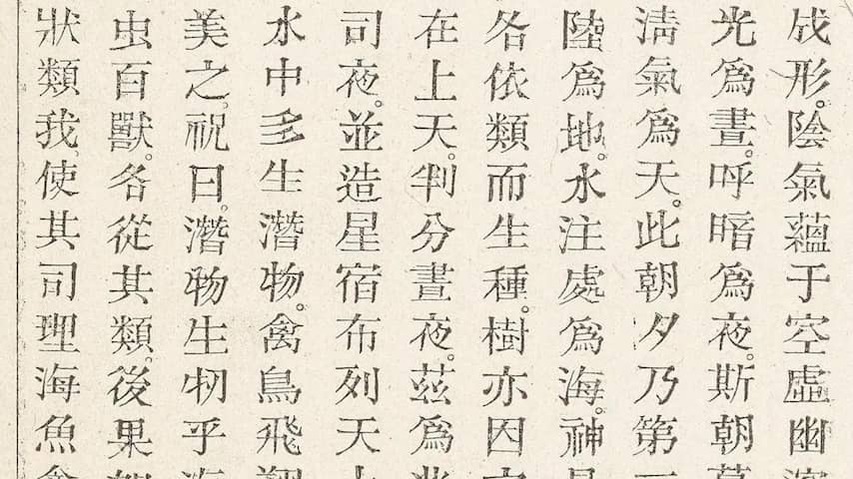 成形。陰氣蘊于空虛幽
光爲晝。呼暗爲夜。斯朝
清氣爲天。此朝夕乃第
陸爲地。水注處爲海。神
各依類而生種。樹亦因
在上天。判分晝夜。茲爲
司夜。並造星宿布列天
水中多生潛物。禽鳥飛
美之。祝曰。潛物生牣乎
虫百獸。各從其類。後果
狀類我。使其司理海魚